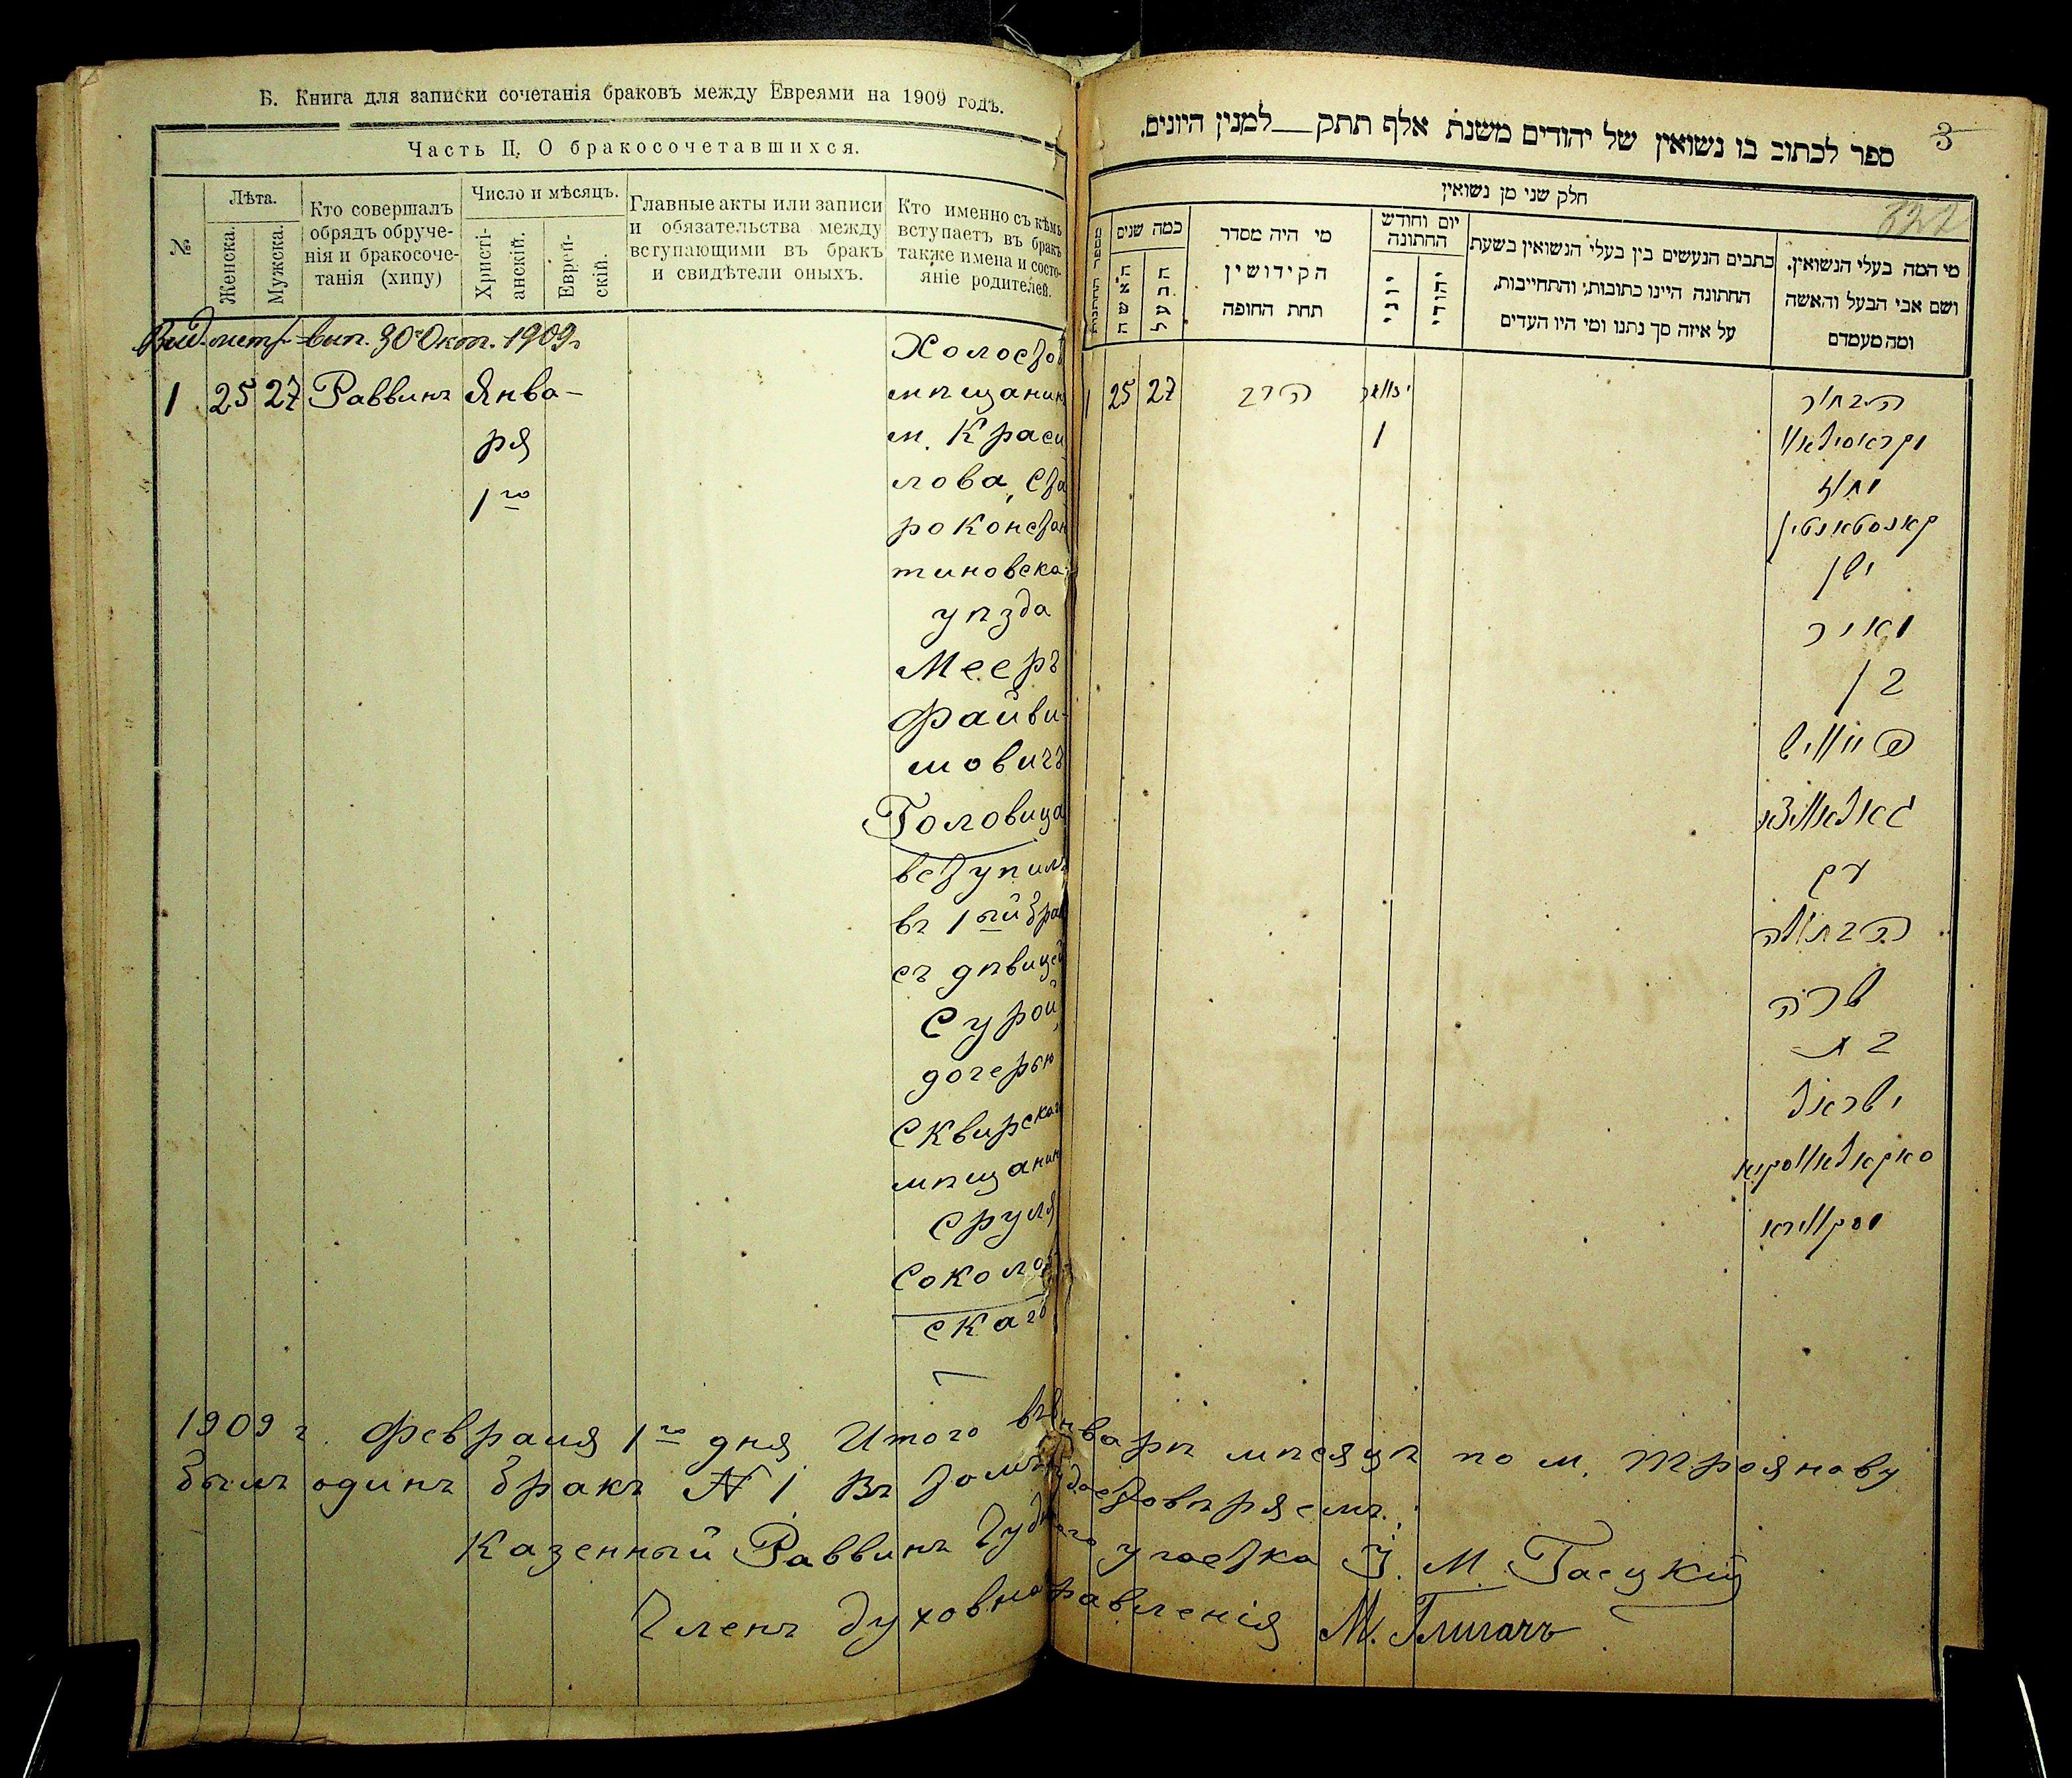 Б. Книга для записки сочетанія браковъ между Евреями на 1909 годъ.
Часть II. О бракосочетавшихся.
№
Лѣта.
Женска.
Мужска.
Кто совершалъ
обрядъ обруче-
нія и бракосоче-
танія (хипу)
Число и мѣсяцъ.
Христі-
анскій.
Еврей-
скій.
Главные акты или записи
и обязательства между
вступающими въ бракъ
и свидѣтели оныхъ.
Кто именно съ кѣмъ
вступаетъ въ бракъ
также имена и состо-
яніе родителей.
вып. 30 Окт. 1909 г
1 25 27 Раввинъ Янва-
ря
1го
Холостой
мѣщанинъ
м. Краси
лова, Ста
роконстан
тиновска
уѣзда
Мееръ
Файви-
шовичъ
Головица
вступилъ
въ 1ый брак
съ дѣвицей
Сурой,
дочерью
Сквирскаго
мѣщанина
Сруля
Соколов
скаго
1909 г. Февраля 1го дня Итого въ январѣ мѣсяцѣ по м. Троянову
былъ одинъ бракъ № 1 Въ томъ удостовѣряемъ:
Казенный Раввинъ участка І. М. Гасцкій
Членъ Духовнаго правленія М. Глигачъ
3
ספר לכתוב בו נשואין של יהודים משנת אלף תתק__למנין היונים.
חלק שני מן נשואין
מספר החתונות
כמה שנים
האשה
הבעל
מי היה מסדר
הקידושין
תחת החופה
יום וחודש
החתונה
יוני
יהודי
כתבים הנעשים בין בעלי הנשואין בשעת
החתונה היינו כתובות, והתחייבות,
על איזה סך נתנו ומי היו העדים
מי המה בעלי הנשואין.
ושם אבי הבעל והאשה
ומה מעמדם
1 25 27 הרב ינואר
1
הבחור
מקראסילאוו
מחוז
קאנסטאנטין
ישן
מאיר
בן
פייוויש
גאלאוויצא
עם
הבתולה
שרה
בת
ישראל
סאקאלאווסקי
מסקווירא